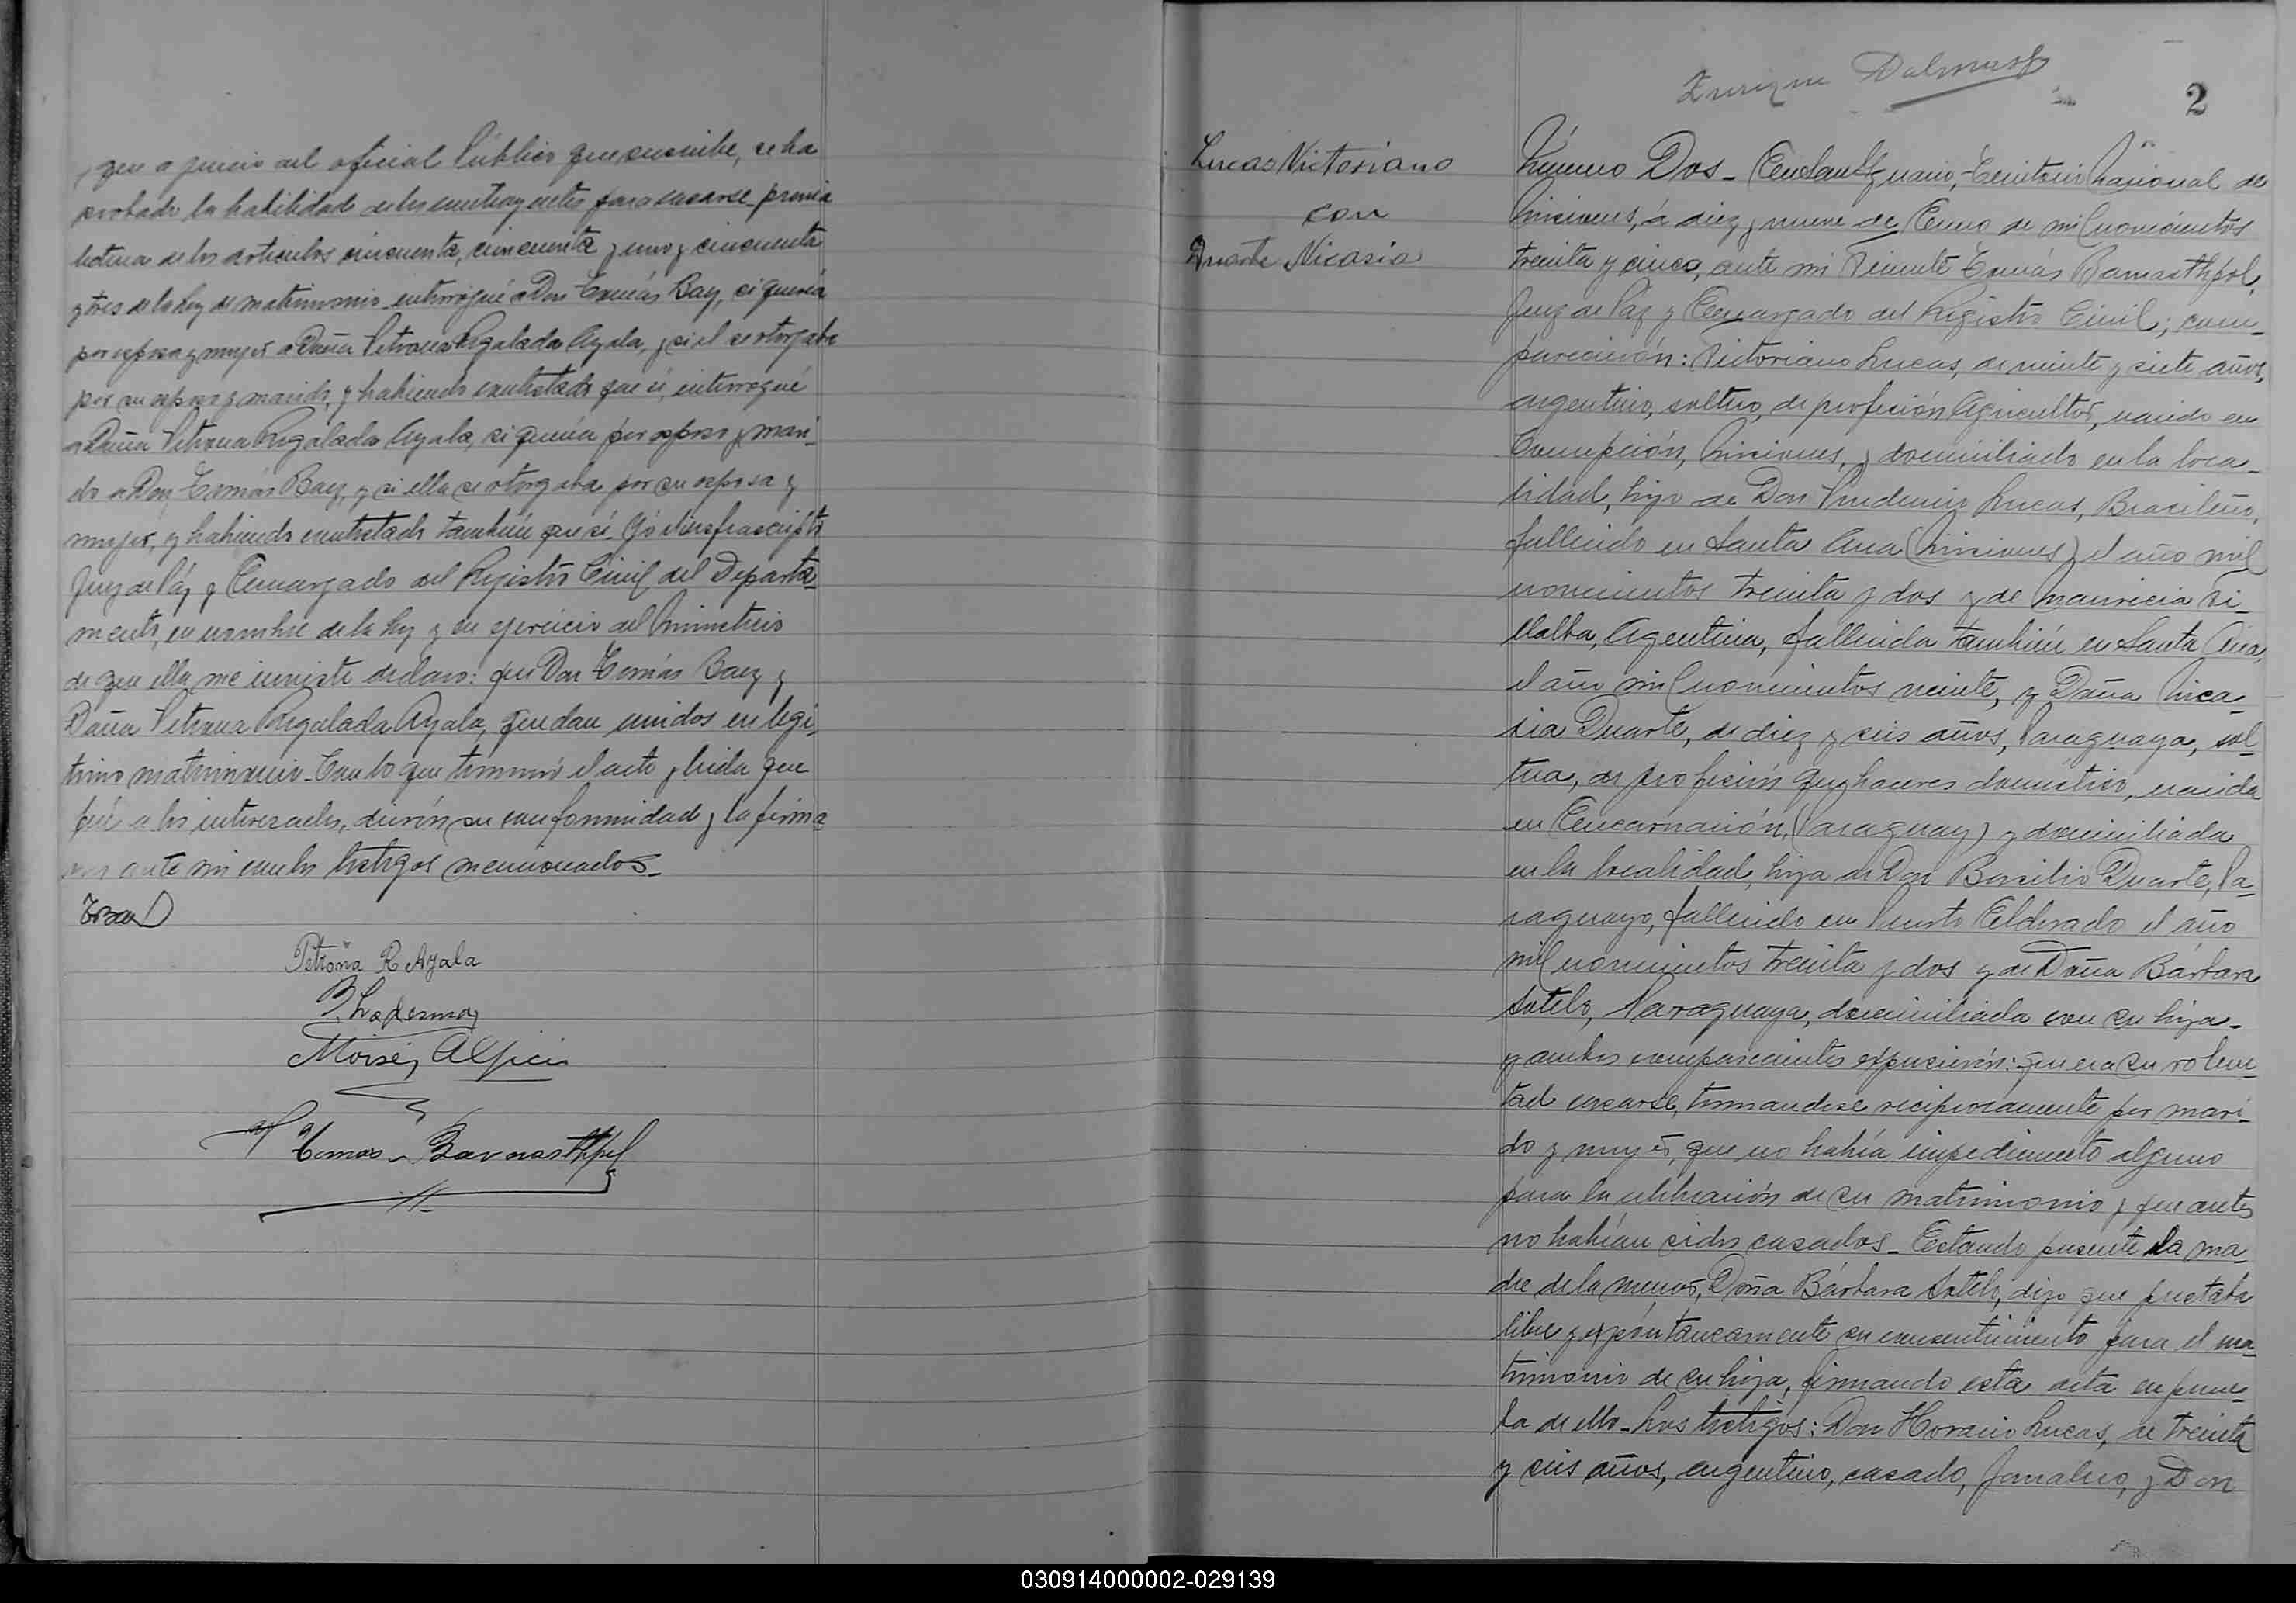 y que a juicio del oficial Público que suscribe, se ha
probado la habilidad de los contrayentes para casarse previa
lectura de los artículos cincuenta, cincuenta y uno y cincuenta
y tres de la ley de matrimonio interrogué a Don Tomás Baez, si quería
por esposa y mujer a Doña Petrona Regalada Ayala, y si el se otorgaba
por su esposo y marido, y habiendo contestado que sí, interrogué
a Doña Petrona Regalada Ayala, si quería por esposo y mari-
do a Don Tomás Baez, y si ella se otorgaba por su esposa y
mujer, y habiendo contestado también que sí. Yó el infrascripto
Juez de Páz y Encargado del Registro Civil del Departa-
mento, en nombre de la ley y en ejercicio del Ministerio
de que ella me inviste declaro: que Don Tomás Baez y
Doña Petrona Regalada Ayala, quedan unidos en legí-
timo matrimonio. Con lo que terminó el acto y leída que
fué a los interesados, dieron su conformidad y la firma
ron ante mí con los testigos mencionados-
Petrona R Ayala
Moisés
Tomas Barnasthpol
Enrique
2
Lucas Victoriano
con
Duarte Nicasia
Número Dos- En San Ygnacio, Territorio Nacional de
Misiones, á diez y nueve de Enero de mil novecientos
treinta y cinco, ante mí Vicente Tomás Barnasthpol,
Juez de Páz y Encargado del Registro Civil; com-
parecieron: Victoriano Lucas, de veinte y siete años,
argentino, soltero, de profesión Agricultor, nacido en
Concepción, Misiones, y domiciliado en la loca-
lidad, hijo de Don Prudencio Lucas, Brasileño,
fallecido en Santa Ana (Misiones) el año mil
novecientos treinta y dos y de Mauricia Vi-
llalba, Argentina, fallecida también en Santa Ana,
el año mil novecientos veinte, y Doña Nica-
sia Duarte, de diez y seis años, Paraguaya, sol
tera, de profesión quehaceres doméstico, nacida
en Encarnación, (Paraguay) y domiciliada
en la localidad, hija de Don Basilio Duarte, Pa-
raguayo, fallecido en Puerto Eldorado el año
mil novecientos treinta y dos y de Doña Bárbara
Sotelo, Paraguaya, domiciliada con su hija-
y ambos comparecientes expusieron: que era su volun-
tad casarse, tomandose reciprocamente por mari-
do y mujer, que no había impedimento alguno
para la celebración de su matrimonio y que antes
no habían sidos casados- Estando presente la ma-
dre de la menor, Doña Bárbara Sotelo, dijo que prestaba
libre y espóntáneamente su consentimiento para el ma-
trimonio de su hija, firmando esta acta en prue-
ba de ello- Los testigos: Don Horacio Lucas, de treinta
y seis años, argentino, casado, Jornalero, y Don
030914000002-029139